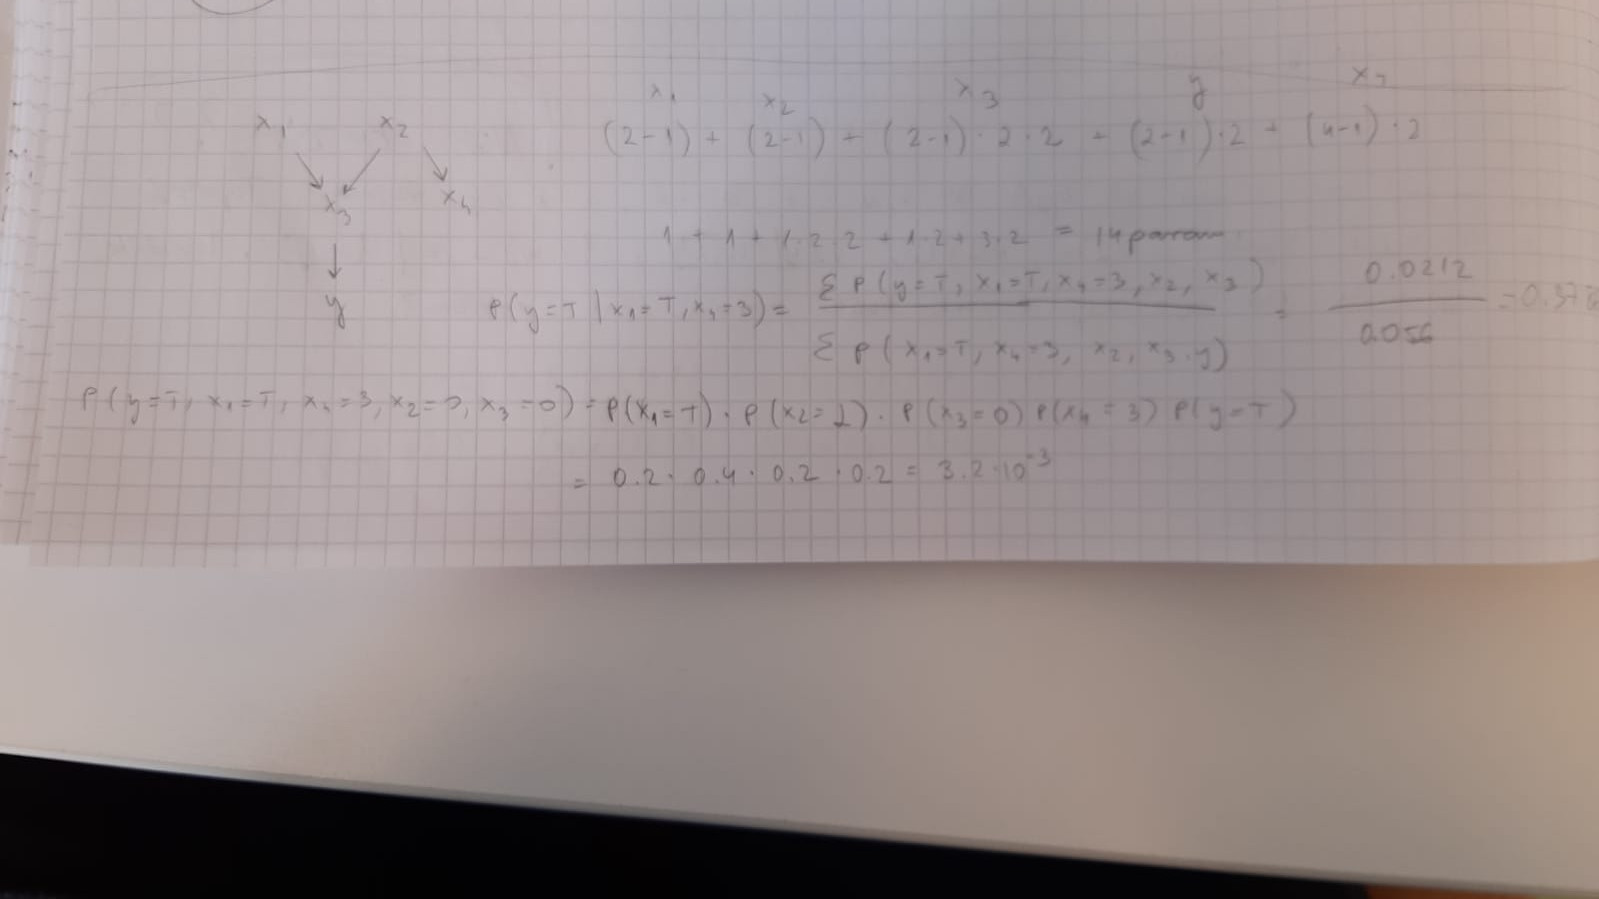 x₁ x₂ x₃ y
(2-1) + (2-1) + (2-1)·2·2 + (2-1)·2 + (4-1)·2
x₁ x₂
x₃ x₄
y
1 + 1 + 1·2·2 + 1·2 + 3·2 = 14 param
P(y=T | x₁=T, x₄=3) = Σ P(y=T, x₁=T, x₄=3, x₂, x₃) / Σ P(x₁=T, x₄=3, x₂, x₃, y) = 0.0212 / 0.056
P(y=T, x₁=T, x₄=3, x₂=0, x₃=0) = P(x₁=T) · P(x₂=1) · P(x₃=0) P(x₄=3) P(y=T)
= 0.2 · 0.4 · 0.2 · 0.2 = 3.2·10⁻³